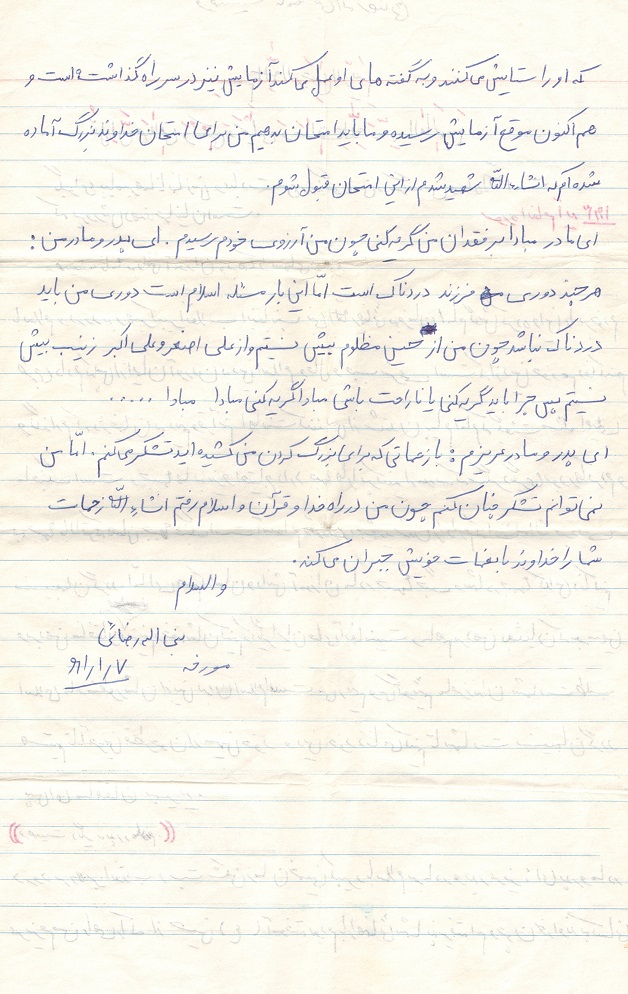 که او را ستایش می کنند و به گفته های او عمل می کنند آزمایش نیز در سر راه گذاشته است و
هم اکنون موقع آزمایش رسیده و ما باید امتحان بدهیم من برای امتحان خداوند بزرگ آماده
شده ام که انشاءالله شهید شدم از این امتحان قبول شوم.
ای مادر مبادا بر فقدان من گریه کنی چون من آرزوی خودم رسیدم. ای پدر و مادر من:
هر چند دوری فرزند دردناک است امّا این بار مسئله اسلام است دوری من باید
دردناک نباشد چون من از حسین مظلوم بیش نیستم و از علی اصغر و علی اکبر زینب بیش
نیستم پس چرا باید گریه کنی یا ناراحت باشی مبادا گریه کنی مبادا مبادا .....
ای پدر و مادر عزیزم: با زحماتی که برای بزرگ کردن من کشیده اید تشکر می کنم. امّا من
نمی توانم تشکر چنان کنم چون من در راه خدا و قرآن و اسلام رفتم انشاءالله زحمات
شما را خداوند با نعمات خویش جبران می کند.
والسلام
رضائی
مورخه ۶۱/۱/۷